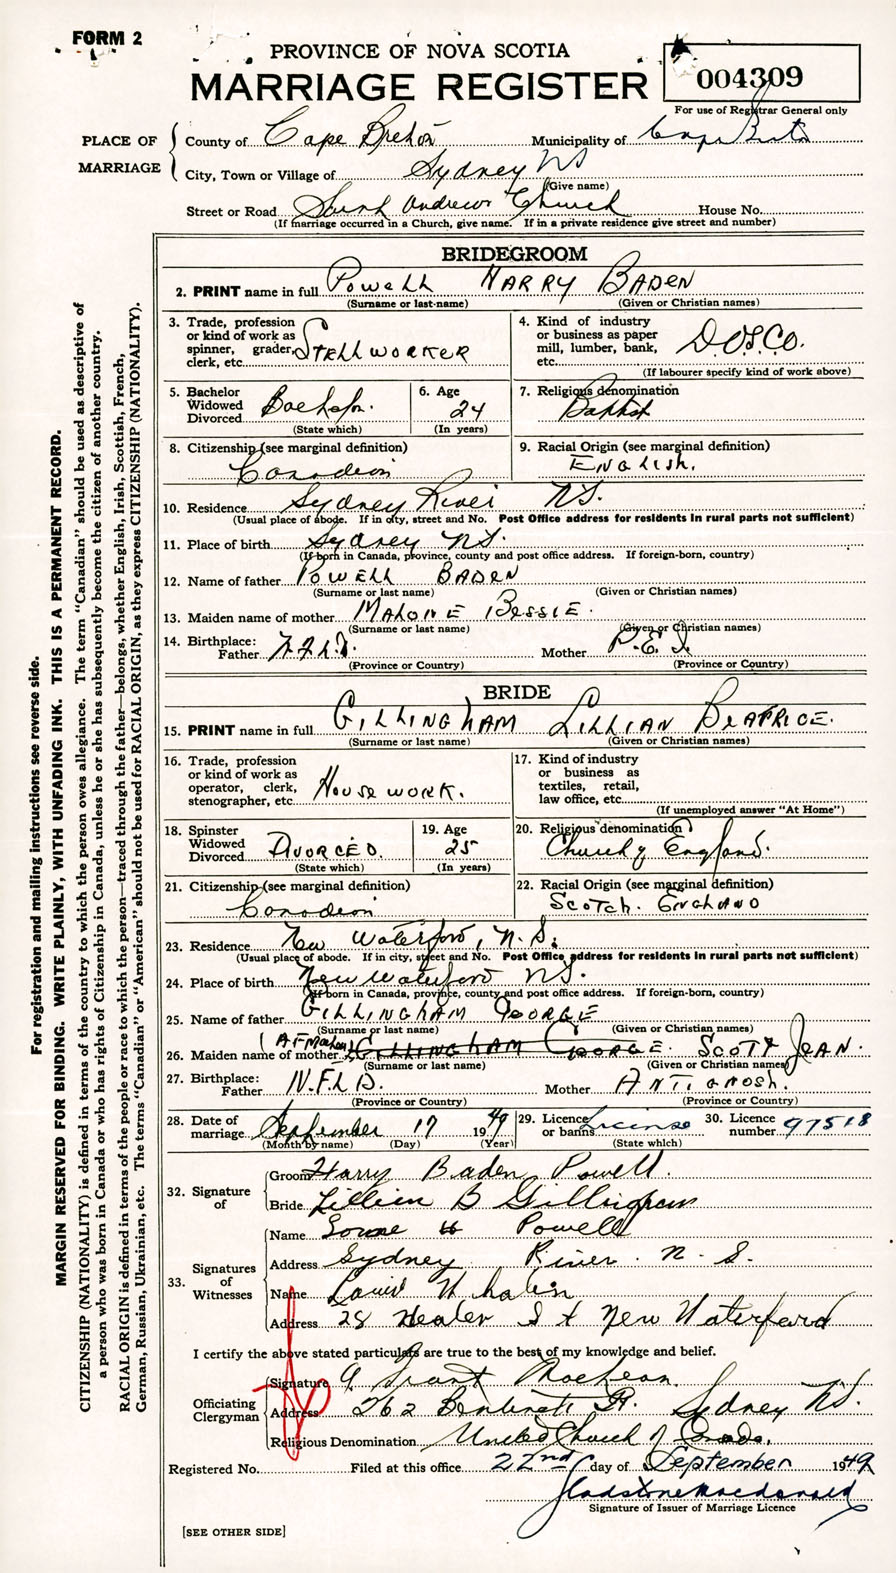 FORM 2
PROVINCE OF NOVA SCOTIA
MARRIAGE REGISTER
004309
For use of Registrar General only
PLACE OF MARRIAGE
County of Cape Breton Municipality of Cape Breton
City, Town or Village of Sydney NS
(Give name)
Street or Road Saint Andrews Church House No.
(If marriage occurred in a Church, give name. If in a private residence give street and number)
BRIDEGROOM
2. PRINT name in full Powell Harry Baden
(Surname or last-name) (Given or Christian names)
3. Trade, profession or kind of work as spinner, grader, clerk, etc. STELLWORKER
4. Kind of industry or business as paper mill, lumber, bank, etc. D.O.S.CO.
(If labourer specify kind of work above)
5. Bachelor Widowed Divorced Bachelor.
(State which)
6. Age 24
(In years)
7. Religious denomination Baptist
8. Citizenship (see marginal definition) Canadian
9. Racial Origin (see marginal definition) English.
10. Residence Sydney River NS.
(Usual place of abode. If in city, street and No. Post Office address for residents in rural parts not sufficient)
11. Place of birth Sydney NS.
(If born in Canada, province, county and post office address. If foreign-born, country)
12. Name of father POWELL BADEN
(Surname or last name) (Given or Christian names)
13. Maiden name of mother MALONE BESSIE.
(Surname or last name) (Given or Christian names)
14. Birthplace: Father N.F.L.D. Mother P.E.I.
(Province or Country) (Province or Country)
BRIDE
15. PRINT name in full GILLINGHAM LILLIAN BEATRICE.
(Surname or last name) (Given or Christian names)
16. Trade, profession or kind of work as operator, clerk, stenographer, etc. House work.
17. Kind of industry or business as textiles, retail, law office, etc.
(If unemployed answer "At Home")
18. Spinster Widowed Divorced DIVORCED.
(State which)
19. Age 25
(In years)
20. Religious denomination Church of England.
21. Citizenship (see marginal definition) Canadian
22. Racial Origin (see marginal definition) Scotch. England
23. Residence New Waterford, N.S.
(Usual place of abode. If in city, street and No. Post Office address for residents in rural parts not sufficient)
24. Place of birth New Waterford NS.
(If born in Canada, province, county and post office address. If foreign-born, country)
25. Name of father GILLINGHAM GEORGE
(Surname or last name) (Given or Christian names)
26. Maiden name of mother GILLINGHAM GEORGE. SCOTT JEAN.
(Surname or last name) (Given or Christian names)
27. Birthplace: Father N.F.L.D. Mother ANTIGNOSH.
(Province or Country) (Province or Country)
28. Date of marriage September 17 1949
(Month by name) (Day) (Year)
29. Licence or banns License
(State which)
30. Licence number 97518
32. Signature of
Groom Harry Baden Powell.
Bride Lillian B Gillingham
33. Signatures of Witnesses
Name Powell
Address Sydney River. N. S.
Name Whalen
Address 28 St New Waterford
I certify the above stated particulars are true to the best of my knowledge and belief.
Officiating Clergyman
Signature Grant MacLean.
Address 262 St. Sydney NS.
Religious Denomination United Church of Canada.
Registered No. Filed at this office 22nd day of September 1949
Gladstone Macdonald
Signature of Issuer of Marriage Licence
[SEE OTHER SIDE]
For registration and mailing instructions see reverse side.
MARGIN RESERVED FOR BINDING. WRITE PLAINLY, WITH UNFADING INK. THIS IS A PERMANENT RECORD.
CITIZENSHIP (NATIONALITY) is defined in terms of the country to which the person owes allegiance. The term "Canadian" should be used as descriptive of
a person who was born in Canada or who has rights of Citizenship in Canada, unless he or she has subsequently become the citizen of another country.
RACIAL ORIGIN is defined in terms of the people or race to which the person—traced through the father—belongs, whether English, Irish, Scottish, French,
German, Russian, Ukrainian, etc. The terms "Canadian" or "American" should not be used for RACIAL ORIGIN, as they express CITIZENSHIP (NATIONALITY).